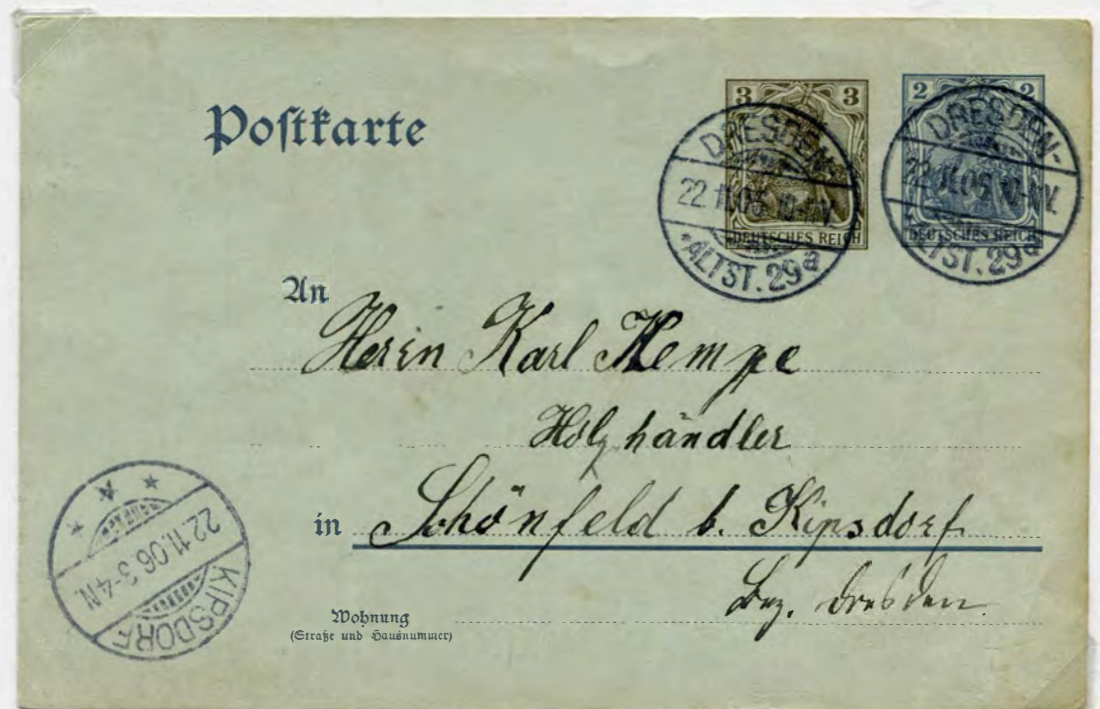 Postkarte
3 3
DEUTSCHES REICH
2 2
DEUTSCHES REICH
DRESDEN-
22.11.06. 10-11V.
*ALTST. 29a
DRESDEN-
22.11.06. 10-11V.
*ALTST. 29a
An
Herrn Karl Kempe
Holzhändler
in Schönfeld b. Kipsdorf
Bez. Dresden.
Wohnung
(Straße und Hausnummer)
KIPSDORF
22.11.06 3-4N.
* A *